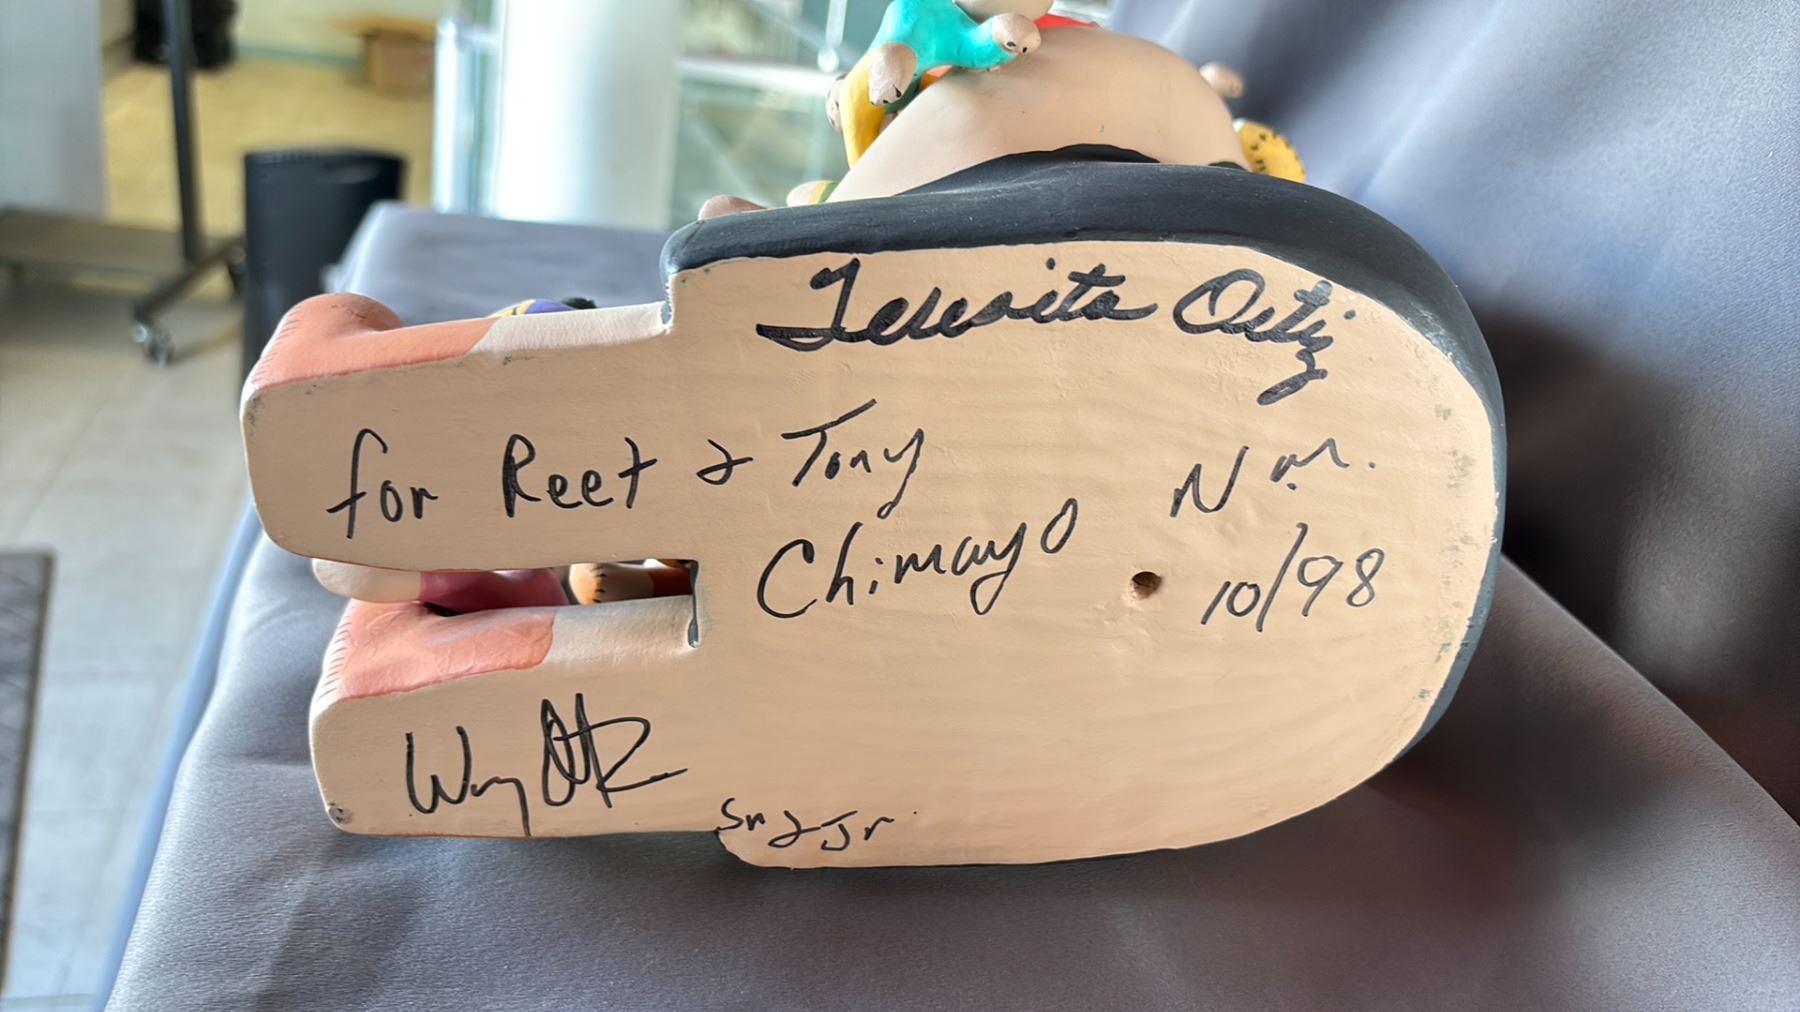 Teresita Ortiz
for Reet & Tony
Chimayo N.M.
10/98
Sr & Jr